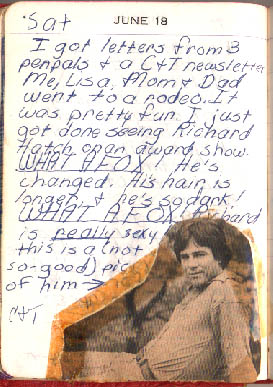 Sat
JUNE 18
I got letters from 3
penpals & a C&T newsletter
Me, Lisa, Mom & Dad
went to a rodeo. It
was pretty fun. I just
got done seeing Richard
Hatch on an award show.
WHAT A FOX! He's
changed. His hair is
longer & he's so dark!
WHAT A FOX! Richard
is really sexy!
this is a (not
so-good) pic
of him →
C&T